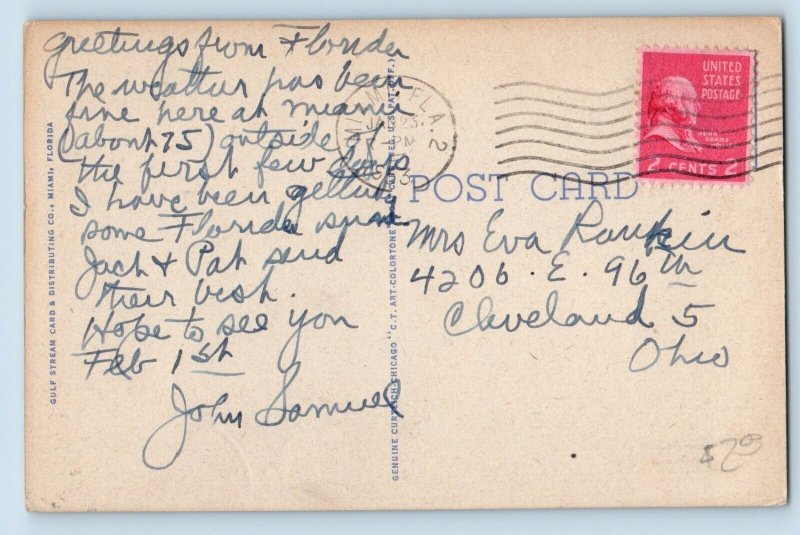 greetings from Florida
The weather has been
fine here at Miami
(about 75) outside of
the first few days
I have been getting
some Florida sun
Jack & Pat send
their best.
Hope to see you
Feb 1st
John Samuel
GULF STREAM CARD & DISTRIBUTING CO., MIAMI, FLORIDA
GENUINE CURTEICH-CHICAGO "C.T. ART-COLORTONE" U.S. PAT. OFF.)
FLA. 2
POST CARD
UNITED
STATES
POSTAGE
JOHN
ADAMS
2 CENTS 2
Mrs Eva Rankin
4206. E. 96th
Cleveland 5
Ohio